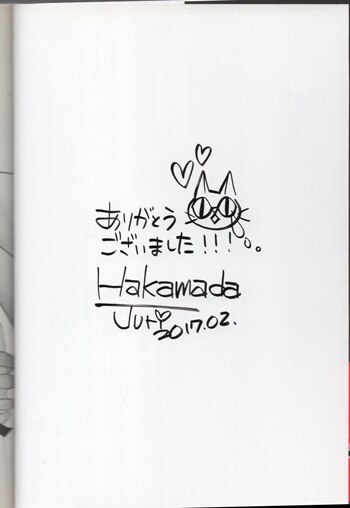 ありがとう
ございました!!!
Hakamada
Juri
2017.02.